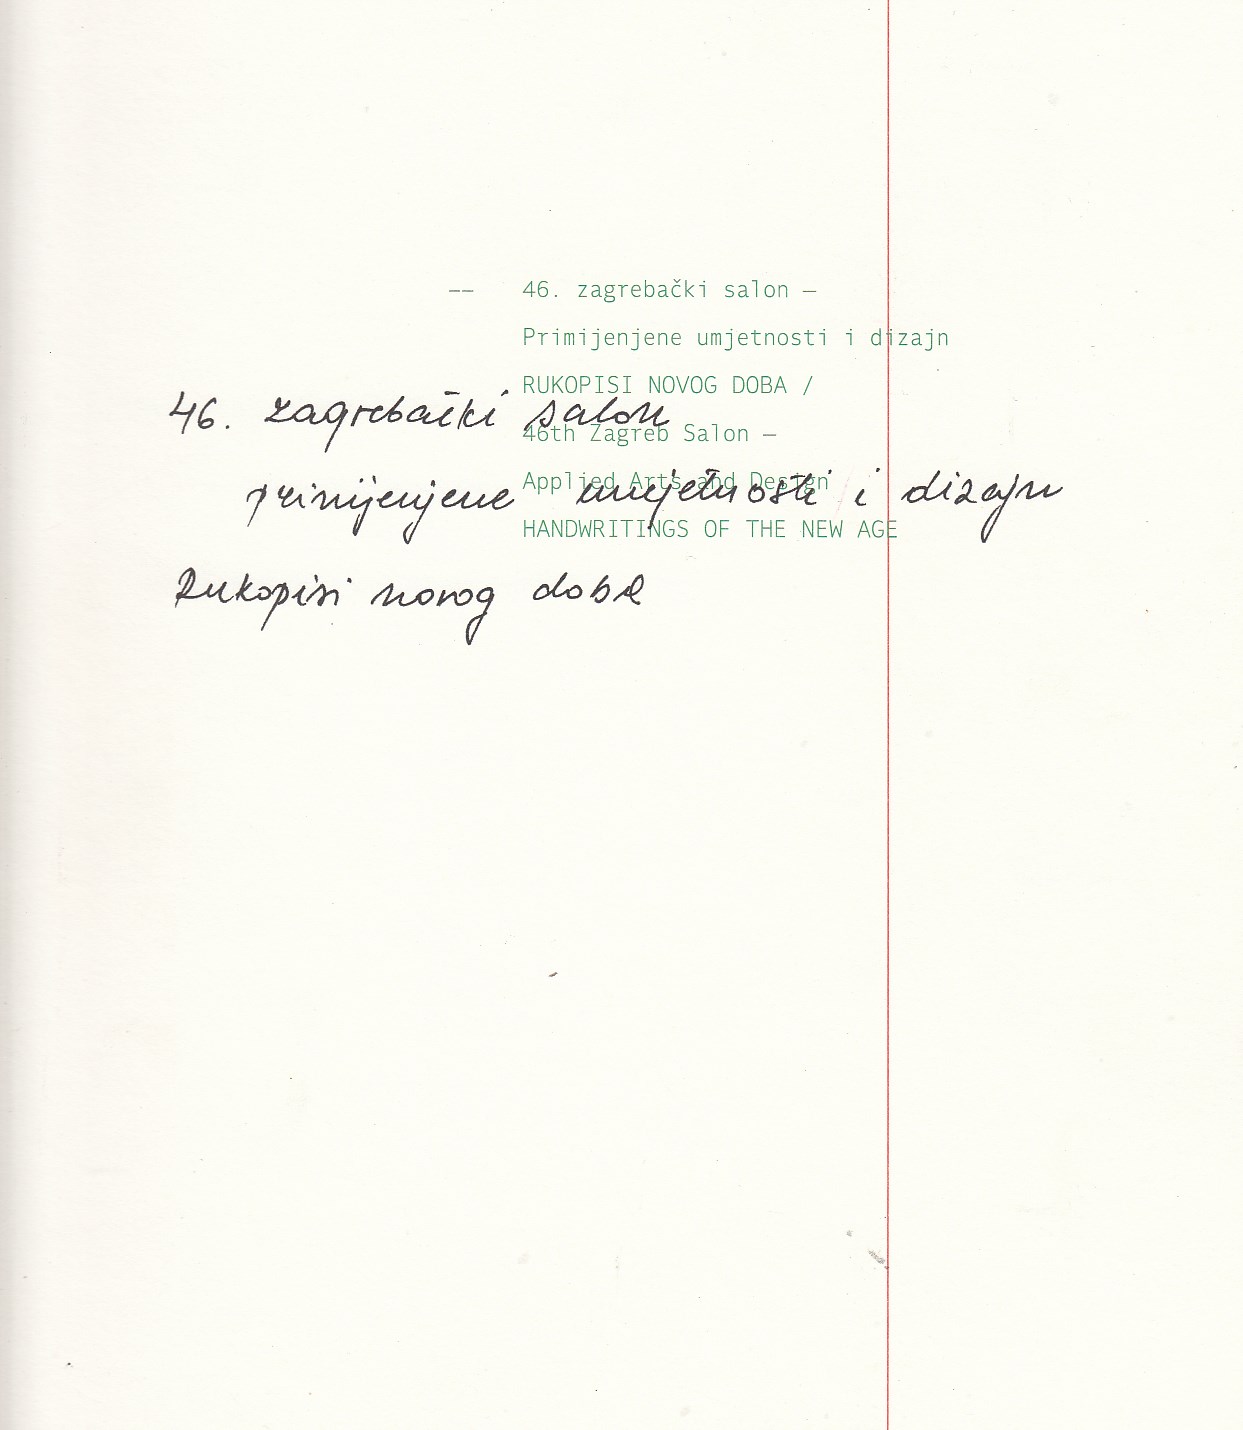 -- 46. zagrebački salon –
Primijenjene umjetnosti i dizajn
RUKOPISI NOVOG DOBA /
46. zagrebački salon
46th Zagreb Salon –
Applied Arts and Design
primijenjene umjetnosti i dizajn
HANDWRITINGS OF THE NEW AGE
Rukopisi novog doba